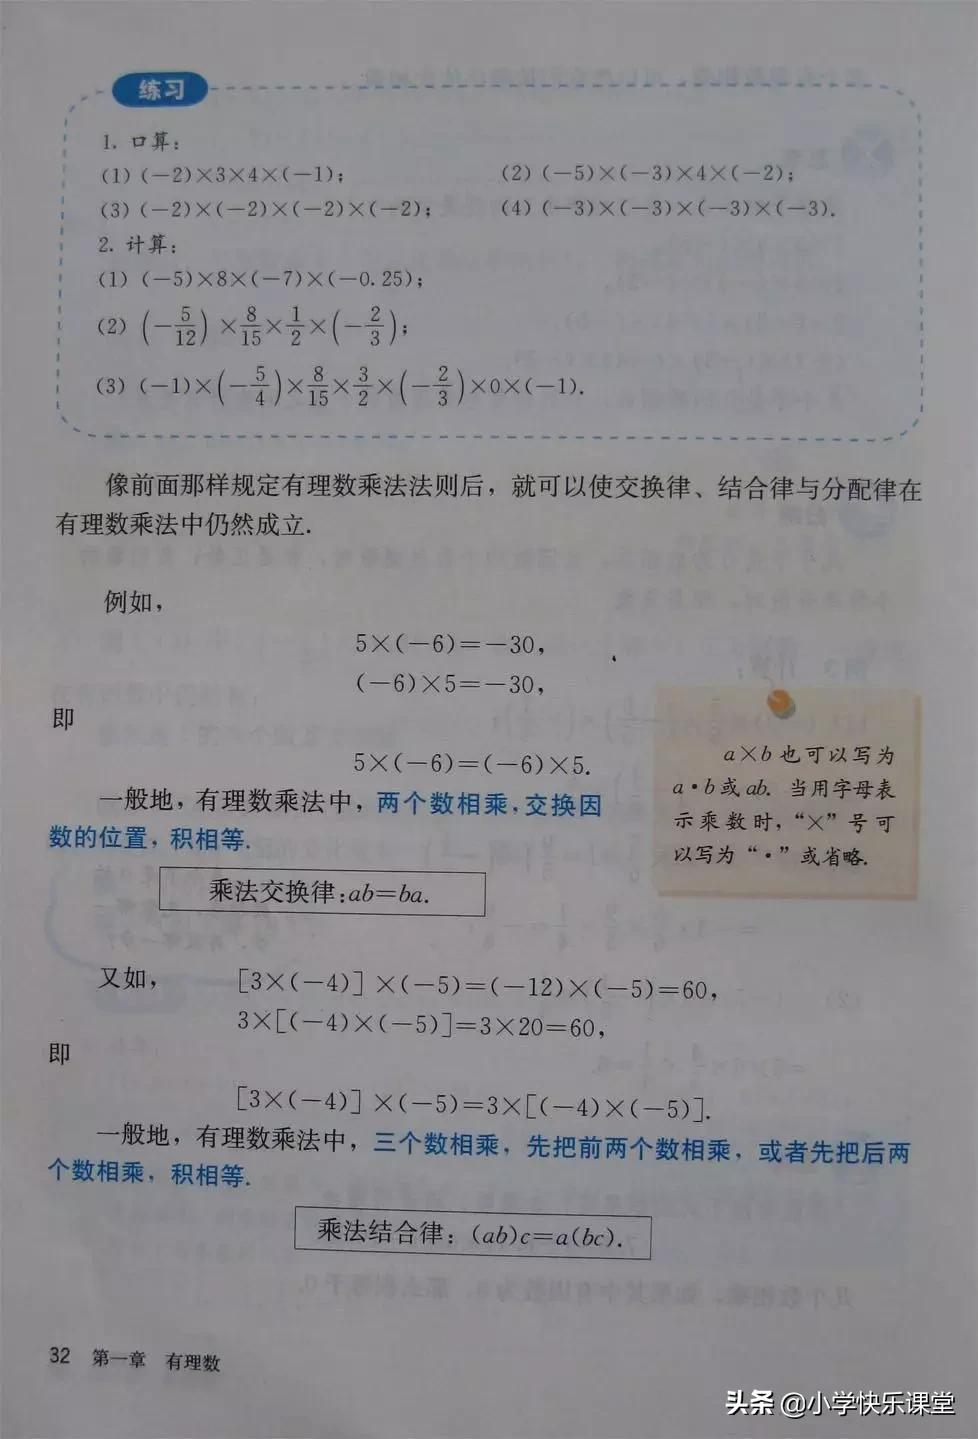 练习
1. 口算：
(1) (−2)×3×4×(−1)； (2) (−5)×(−3)×4×(−2)；
(3) (−2)×(−2)×(−2)×(−2)； (4) (−3)×(−3)×(−3)×(−3).
2. 计算：
(1) (−5)×8×(−7)×(−0.25)；
(2) (−5/12)×8/15×1/2×(−2/3)；
(3) (−1)×(−5/4)×8/15×3/2×(−2/3)×0×(−1).
像前面那样规定有理数乘法法则后，就可以使交换律、结合律与分配律在
有理数乘法中仍然成立.
例如，
5×(−6)=−30，
(−6)×5=−30，
即
5×(−6)=(−6)×5.
一般地，有理数乘法中，两个数相乘，交换因
数的位置，积相等.
乘法交换律：ab=ba.
a×b 也可以写为
a·b或ab. 当用字母表
示乘数时，“×”号可
以写为“·”或省略.
又如， [3×(−4)]×(−5)=(−12)×(−5)=60，
3×[(−4)×(−5)]=3×20=60，
即
[3×(−4)]×(−5)=3×[(−4)×(−5)].
一般地，有理数乘法中，三个数相乘，先把前两个数相乘，或者先把后两
个数相乘，积相等.
乘法结合律：(ab)c=a(bc).
32 第一章 有理数
头条 @小学快乐课堂